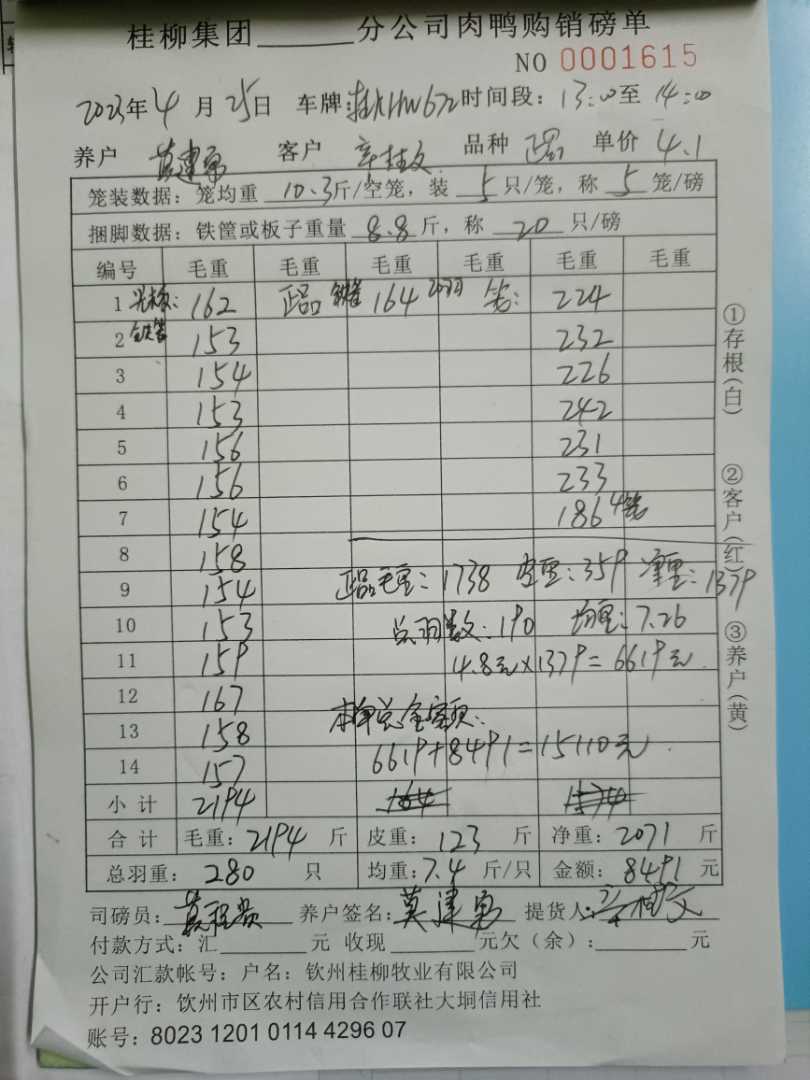 桂柳集团______分公司肉鸭购销磅单
NO 0001615
2023年4月25日 车牌: 时间段：13:00至14:00
养户 莫建勇 客户 品种 正品 单价 4.1
笼装数据：笼均重 10.3斤/空笼，装 5只/笼，称 5笼/磅
捆脚数据：铁筐或板子重量 8.8斤，称 20只/磅
编号 毛重 毛重 毛重 毛重 毛重 毛重
1 162 正品 164 笼: 224
2 153 232
3 154 226
4 153 242
5 156 231
6 156 233
7 154 186 4笼
8 158
9 154 正品毛重: 1738 空重: 359 净重: 1379
10 153 总羽数: 190 均重: 7.26
11 159 4.8元×1379=6619元
12 167
13 158 本单总金额:
14 157 6619+8491=15110元
小计 2194 164
合计 毛重：2194斤 皮重：123斤 净重：2071斤
总羽重：280只 均重：7.4斤/只 金额：8491元
司磅员： 养户签名：莫建勇 提货人：
付款方式：汇______元 收现______元欠（余）：______元
公司汇款帐号：户名：钦州桂柳牧业有限公司
开户行：钦州市区农村信用合作联社大垌信用社
账号：8023 1201 0114 4296 07
①存根（白）
②客户（红）
③养户（黄）